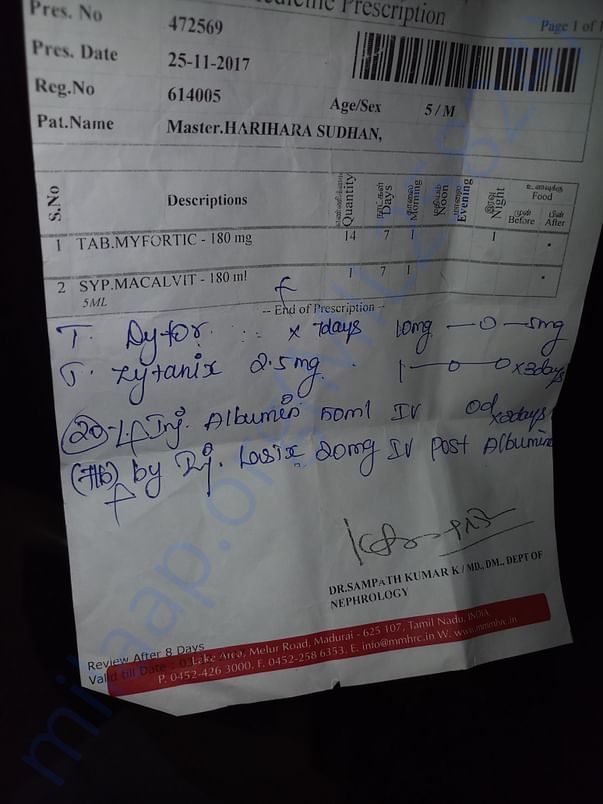 Medicine Prescription
Page 1 of 1
Pres. No 472569
Pres. Date 25-11-2017
Reg.No 614005
Age/Sex 5 / M
Pat.Name Master.HARIHARA SUDHAN,
S.No Descriptions Quantity நாட்கள் Days காலை Morning மதியம் Noon மாலை Evening இரவு Night உணவுக்கு Food முன் Before பின் After
1 TAB.MYFORTIC - 180 mg 14 7 1 1 •
2 SYP.MACALVIT - 180 ml 1 7 1 •
5ML
-- End of Prescription --
T. Dytor x 7days 10mg — 0 — 5mg
T. Zytanix 2.5mg. 1 — 0 — 0 x 3days
20% Inj. Albumin 50ml IV od x 2days
by Inj. Lasix 20mg IV post Albumin
DR.SAMPATH KUMAR K / MD., DM., DEPT OF
NEPHROLOGY
Review After 8 Days
Valid till Date :
Lake Area, Melur Road, Madurai - 625 107, Tamil Nadu, INDIA.
P. 0452-426 3000, F. 0452-258 6353. E. info@mmhrc.in W. www.mmhrc.in
milaap.org